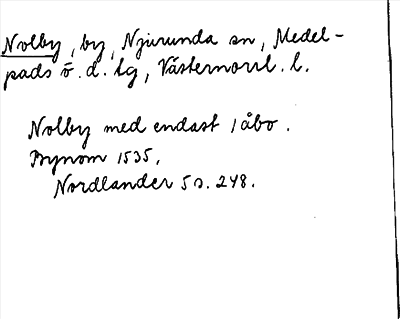 Nolby, by, Njurunda sn, Medel-
pads ö. d. tg, Västernorrl. l.
Nolby med endast 1 åbo.
Bynom 1535,
Nordlander 5 s. 248.